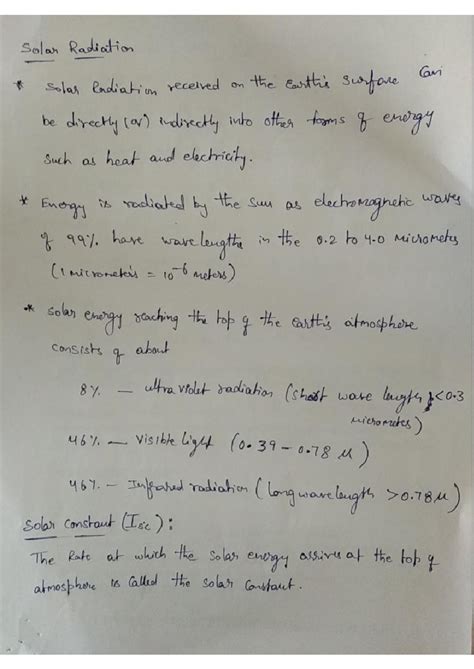 Solar Radiation
* Solar Radiation received on the Earth's Surface Can
be directly (or) indirectly into other forms of energy
Such as heat and electricity.
* Energy is radiated by the Sun as electromagnetic waves
of 99% have wave lengths in the 0.2 to 4.0 micrometes
(1 micrometers = 10⁻⁶ meters)
* Solar energy reaching the top of the Earth's atmosphere
consists of about
8% — ultra violet radiation (short wave length <0.3
micrometes)
46% — Visible light (0.39 – 0.78 μ)
46% – Infrared radiation (long wave length >0.78 μ)
Solar constant (Isc):
The Rate at which the solar energy arrives at the top of
atmosphere is Called the solar Constant.